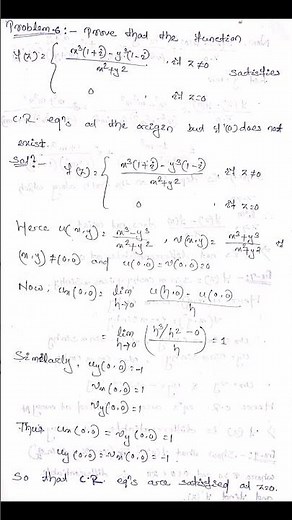 Problem-6:- Prove that the function
f(z) = { x³(1+i) - y³(1-i) / x²+y² , if z≠0 satisfies
0 , if z=0
C.R. eqn's at the origin but f'(0) does not
exist.
Sol:- f(z) = { x³(1+i) - y³(1-i) / x²+y² , if z≠0
0 , if z=0
Here u(x,y) = x³-y³ / x²+y² , v(x,y) = x³+y³ / x²+y² if
(x,y) ≠ (0,0) and u(0,0) = v(0,0) = 0
Now, ux(0,0) = lim h→0 u(h,0) - u(0,0) / h
= lim h→0 (h³/h² - 0 / h) = 1
Similarly, uy(0,0) = -1
vx(0,0) = 1
vy(0,0) = 1
Thus ux(0,0) = vy(0,0) = 1
uy(0,0) = -vx(0,0) = -1
So that C.R. eqn's are satisfied at z=0.